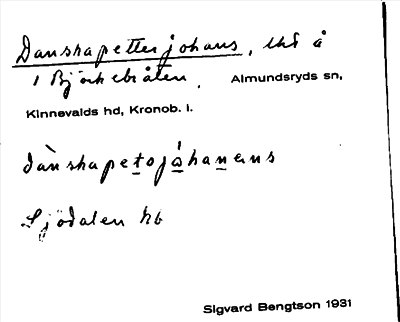 Danskapetterjohans, tkt å
1 Björkebråten, Almundsryds sn,
Kinnevalds hd, Kronob. l.
dànskapetojáhanens
Sjödalen hb
Sigvard Bengtson 1931